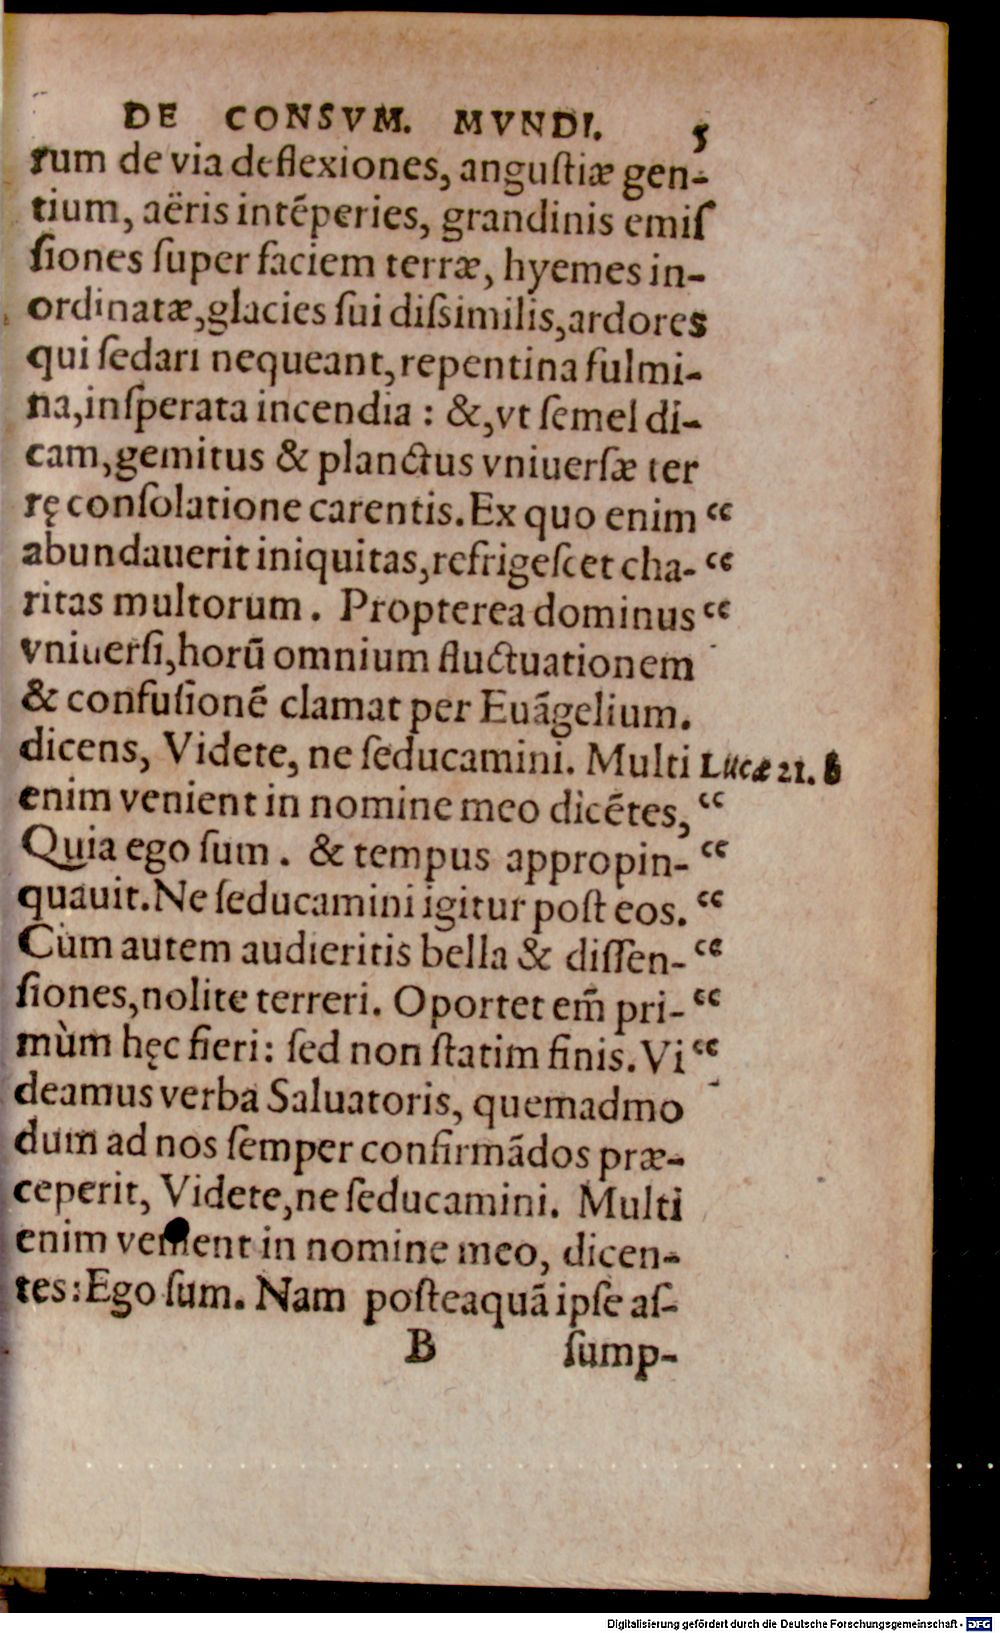 DE CONSVM. MVNDI. 5
rum de via deflexiones, anguſtiæ gen-
tium, aëris intẽperies, grandinis emiſ
ſiones ſuper faciem terræ, hyemes in-
ordinatæ,glacies ſui diſsimilis,ardores
qui ſedari nequeant,repentina fulmi-
na,inſperata incendia : &,vt ſemel di-
cam,gemitus & planctus vniuerſæ ter
rę conſolatione carentis.Ex quo enim “
abundauerit iniquitas,refrigeſcet cha- “
ritas multorum . Propterea dominus “
vniuerſi,horũ omnium fluctuationem
& confuſionẽ clamat per Euãgelium.
dicens, Videte, ne ſeducamini. Multi Lucæ 21. b
enim venient in nomine meo dicẽtes, “
Quia ego ſum . & tempus appropin- “
quauit.Ne ſeducamini igitur poſt eos. “
Cùm autem audieritis bella & diſſen- “
ſiones,nolite terreri. Oportet em̃ pri- “
mùm hęc fieri: ſed non ſtatim finis. Vi “
deamus verba Saluatoris, quemadmo
dum ad nos ſemper confirmãdos præ-
ceperit, Videte,ne ſeducamini. Multi
enim venient in nomine meo, dicen-
tes:Ego ſum. Nam poſteaquã ipſe aſ-
B ſump-
Digitalisierung gefördert durch die Deutsche Forschungsgemeinschaft - DFG